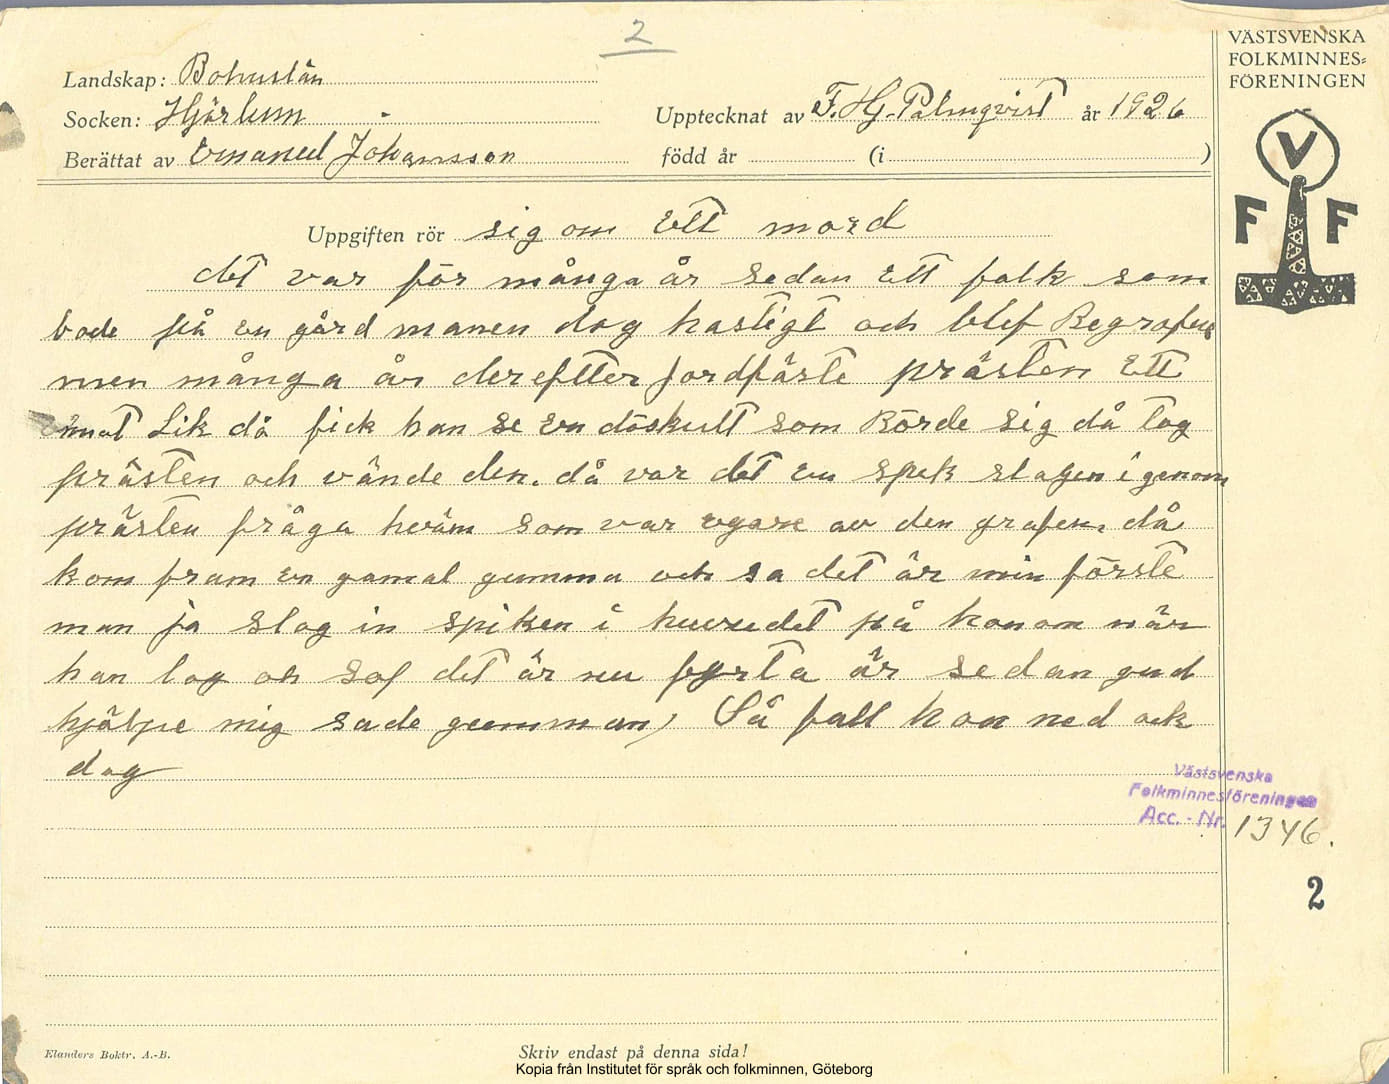 2
VÄSTSVENSKA
FOLKMINNES-
FÖRENINGEN
Landskap: Bohuslän
Socken: Hjärtum
Upptecknat av F. Hj. Palmqvist år 1926
Berättat av Emanuel Johansson
född år (i )
V
F F
Uppgiften rör sig om Ett mord
det var för många år sedan Ett folk som
bode på en gård manen dog hastigt och blef Begrafen
men många år dereftter jordfäste prästen Ett
anat Lik då fick han se En döskult som Rörde sig då tog
prästen och vände den. då var det en spik slagen i genom
prästen fråga hväm som var egare av den grafen. då
kom fram en gamal gumma och sa det är min förste
man ja slog in spiken i huvudet på honom när
han log och sof det är nu fyrta år sedan gud
hjälpe mig sade gumman) Så fall hon ned och
dog
Västsvenska
Folkminnesföreningen
Acc. - Nr. 1346.
2
Elanders Boktr. A.-B.
Skriv endast på denna sida!
Kopia från Institutet för språk och folkminnen, Göteborg